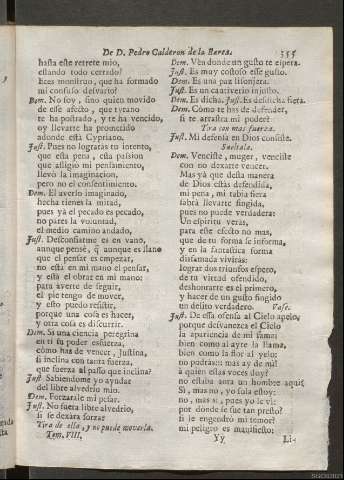 De D. Pedro Calderon de la Barca.
355
hasta este retrete mio,
estando todo cerrado?
Eres monstruo, que ha formado
mi confuso desvarío?
Dem. No soy, sino quien movido
de esse afecto, que tyrano
te ha postrado, y te ha vencido,
oy llevarte ha prometido
adonde está Cypriano.
Just. Pues no lograràs tu intento,
que esta pena, esta passion
que afligió mi pensamiento,
llevó la imaginacion,
pero no el consentimiento.
Dem. El averlo imaginado,
hecha tienes la mitad,
pues yá el pecado es pecado,
no pares la voluntad,
el medio camino andado,
Just. Desconfiarme es en vano,
aunque pensè, q̃ aunque es llano
que el pensar es empezar,
no está en mi mano el pensar,
y está el obrar en mi mano:
para averte de seguir,
el pie tengo de mover,
y esto puedo resistir,
porque una cosa es hacer,
y otra cosa es discurrir.
Dem. Si una ciencia peregrina
en ti su poder esfuerza,
cómo has de vencer, Justina,
si inclina con tanta fuerza,
que fuerza al passo que inclina?
Just. Sabiendome yo ayudar
del libre alvedrio mio.
Dem. Forzarále mi pesar.
Just. No fuera libre alvedrio,
si se dexára forzar
Tira de ella, y no puede moverla.
Tom. VIII.
Dem. Ven donde un gusto te espera.
Just. Es muy costoso esse gusto.
Dem. Es una paz lisonjera.
Just. Es un cautiverio injusto.
Dem. Es dicha. Just. Es desdicha fiera.
Dem. Cómo te has de defender,
si te arrastra mi poder?
Tira con mas fuerza.
Just. Mi defensa en Dios consiste.
Sueltala.
Dem. Venciste, muger, venciste
con no dexarte vencer.
Mas yà que desta manera
de Dios estás defendida,
mi pena, mi rabia fiera
sabrá llevarte fingida,
pues no puede verdadera:
Un espiritu verás,
para este efecto no mas,
que de tu forma se informa,
y en la fantastica forma
disfamada vivirás:
lograr dos triunfos espero,
de tu virtud ofendido,
deshonrarte es el primero,
y hacer de un gusto fingido
un delito verdadero. Vase.
Just. De essa ofensa al Cielo apelo,
porque desvanezca el Cielo
la apariencia de mi fama:
bien como al ayre la llama,
bien como la flor al yelo:
no podràs::: mas ay de mi!
à quien estas voces doy?
no estaba aora un hombre aqui?
Si, mas no, yo sola estoy:
no, mas si, pues yo le vi:
por dónde se fue tan presto?
si le engendró mi temor?
mi peligro es manifiesto:
Yy
Li-